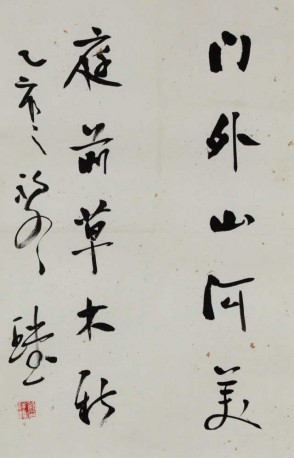 门外山河美
庭前草木新
乙亥之